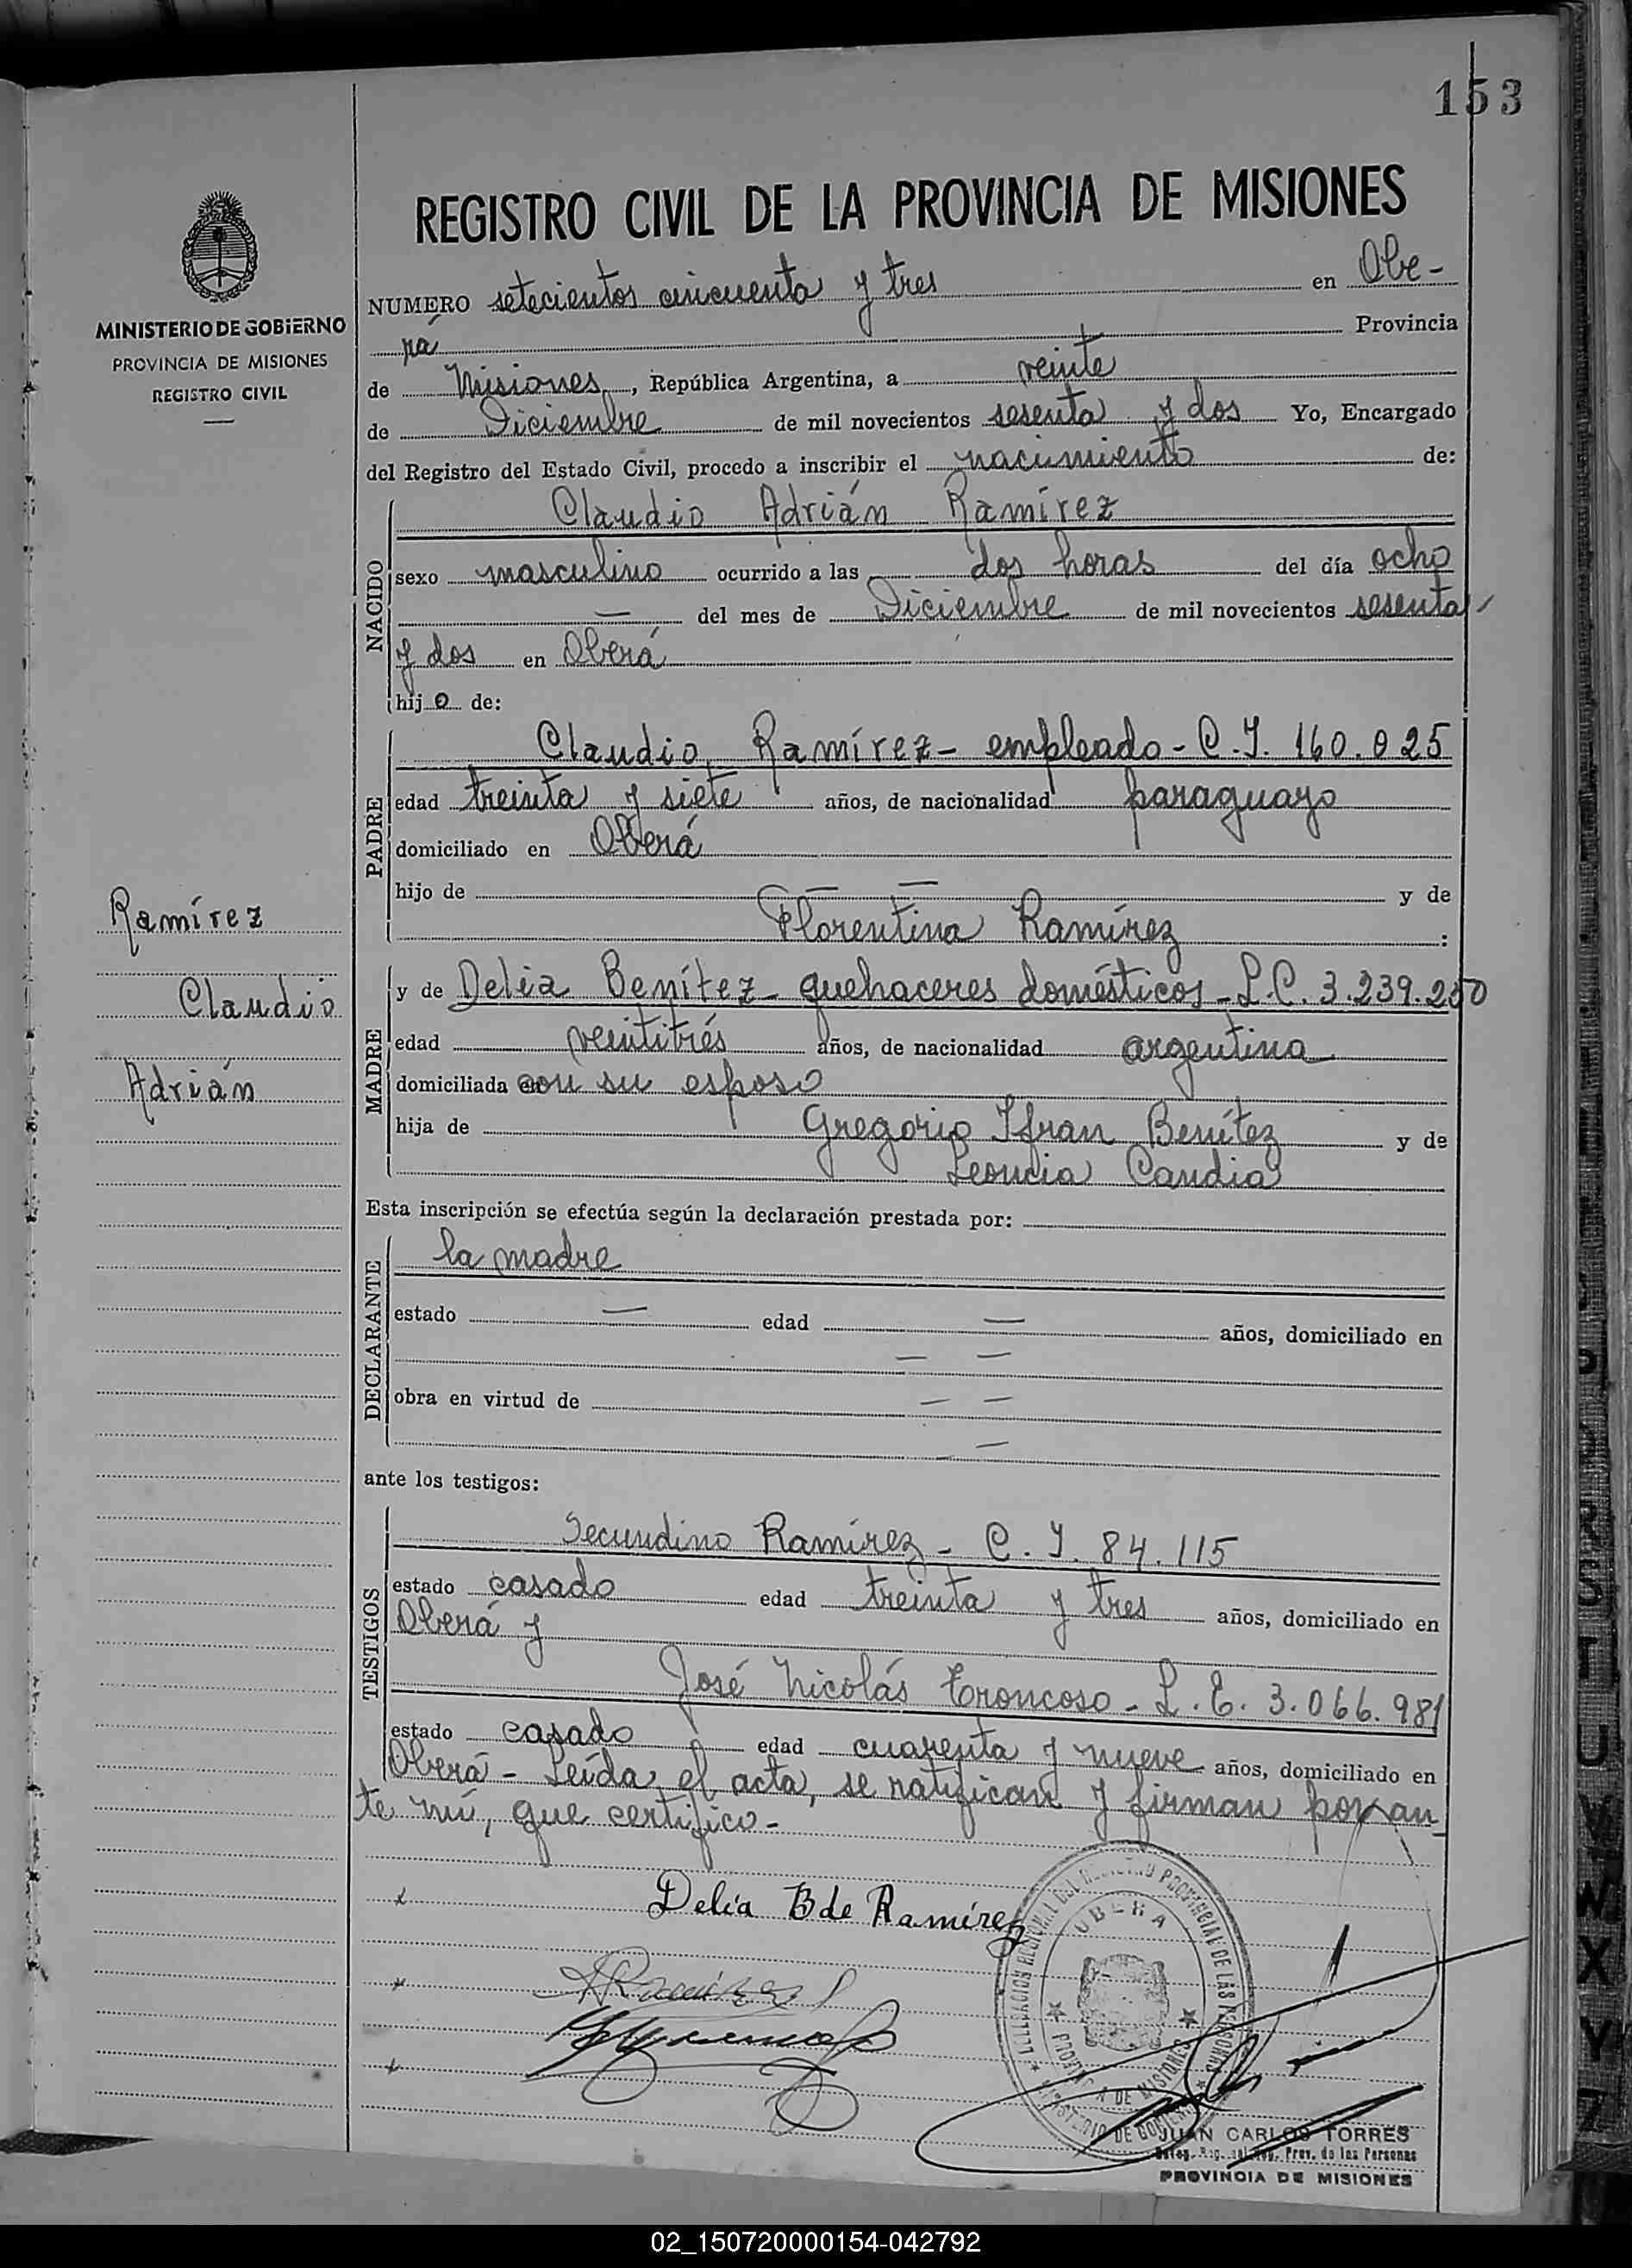 153
REGISTRO CIVIL DE LA PROVINCIA DE MISIONES
MINISTERIO DE GOBIERNO
PROVINCIA DE MISIONES
REGISTRO CIVIL
NUMERO setecientos cincuenta y tres en Obe-
rá Provincia
de Misiones, República Argentina, a veinte
de Diciembre de mil novecientos sesenta y dos Yo, Encargado
del Registro del Estado Civil, procedo a inscribir el nacimiento de:
NACIDO
Claudio Adrián Ramírez
sexo masculino ocurrido a las dos horas del día ocho
— del mes de Diciembre de mil novecientos sesenta
y dos en Oberá
hijo de:
PADRE
Claudio Ramírez - empleado - C.I. 160.025
edad treinta y siete años, de nacionalidad paraguayo
domiciliado en Oberá
hijo de — — y de
Florentina Ramírez :
Ramírez
Claudio
Adrián
MADRE
y de Delia Benítez - quehaceres domésticos - L.C. 3.239.250
edad veintitrés años, de nacionalidad argentina
domiciliada con su esposo
hija de Gregorio Ifran Benítez y de
Leoncia Candia
Esta inscripción se efectúa según la declaración prestada por:
DECLARANTE
la madre
estado — edad — años, domiciliado en
— —
obra en virtud de — —
—
ante los testigos:
TESTIGOS
Secundino Ramírez - C.I. 84.115
estado casado edad treinta y tres años, domiciliado en
Oberá y
José Nicolás Troncoso - L.E. 3.066.981
estado casado edad cuarenta y nueve años, domiciliado en
Oberá - Leída el acta, se ratifican y firman por an
te mí, que certifico -
Delia B de Ramírez
OBERA
PROVINCIA DE MISIONES
MINISTERIO DE GOBIERNO
JUAN CARLOS TORRES
Prov. de las Personas
PROVINCIA DE MISIONES
02_150720000154-042792